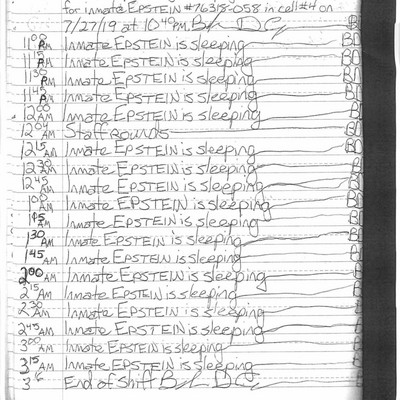 for inmate EPSTEIN #76318-058 in cell #4 on
7/27/19 at 10:40 PM.
11:00 PM Inmate EPSTEIN is sleeping BD
11:15 PM Inmate EPSTEIN is sleeping BD
11:30 PM Inmate EPSTEIN is sleeping BD
11:45 PM Inmate EPSTEIN is sleeping BD
12:00 AM Inmate EPSTEIN is sleeping BD
12:04 AM Staff rounds BD
12:15 AM Inmate EPSTEIN is sleeping BD
12:30 AM Inmate EPSTEIN is sleeping
12:45 AM Inmate EPSTEIN is sleeping
1:00 AM Inmate EPSTEIN is sleeping
1:15 AM Inmate EPSTEIN is sleeping
1:30 AM Inmate EPSTEIN is sleeping
1:45 AM Inmate EPSTEIN is sleeping
2:00 AM Inmate EPSTEIN is sleeping
2:15 AM Inmate EPSTEIN is sleeping
2:30 AM Inmate EPSTEIN is sleeping
2:45 AM Inmate EPSTEIN is sleeping
3:00 AM Inmate EPSTEIN is sleeping
3:15 AM Inmate EPSTEIN is sleeping
End of Shift